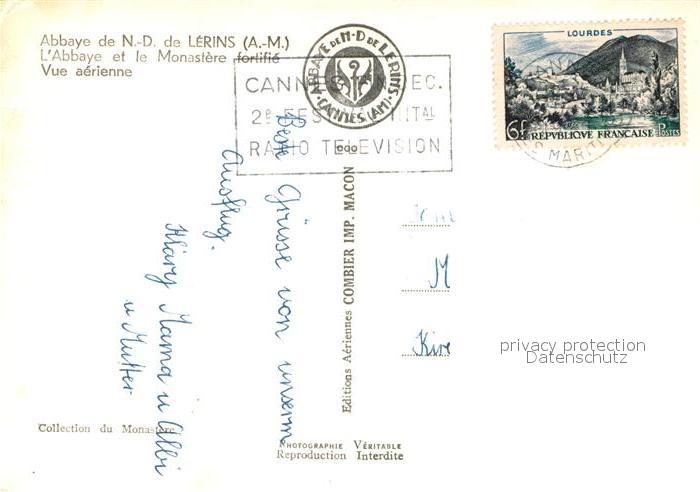 Abbaye de N.-D. de LÉRINS (A.-M.)
L'Abbaye et le Monastère fortifié
Vue aérienne
ABBAYE DE N-D DE LÉRINS
CANNES (AM)
CANNES DEC.
2e
RADIO TELEVISION
LOURDES
6F RÉPUBLIQUE FRANÇAISE POSTES
MARIT
Beste Grüsse von unserm
Ausflug.
Kläry Mama u Albi
u Mutter
Editions Aériennes COMBIER IMP. MACON
M
Kire
privacy protection
Datenschutz
Collection du Monastère
PHOTOGRAPHIE VÉRITABLE
Reproduction Interdite